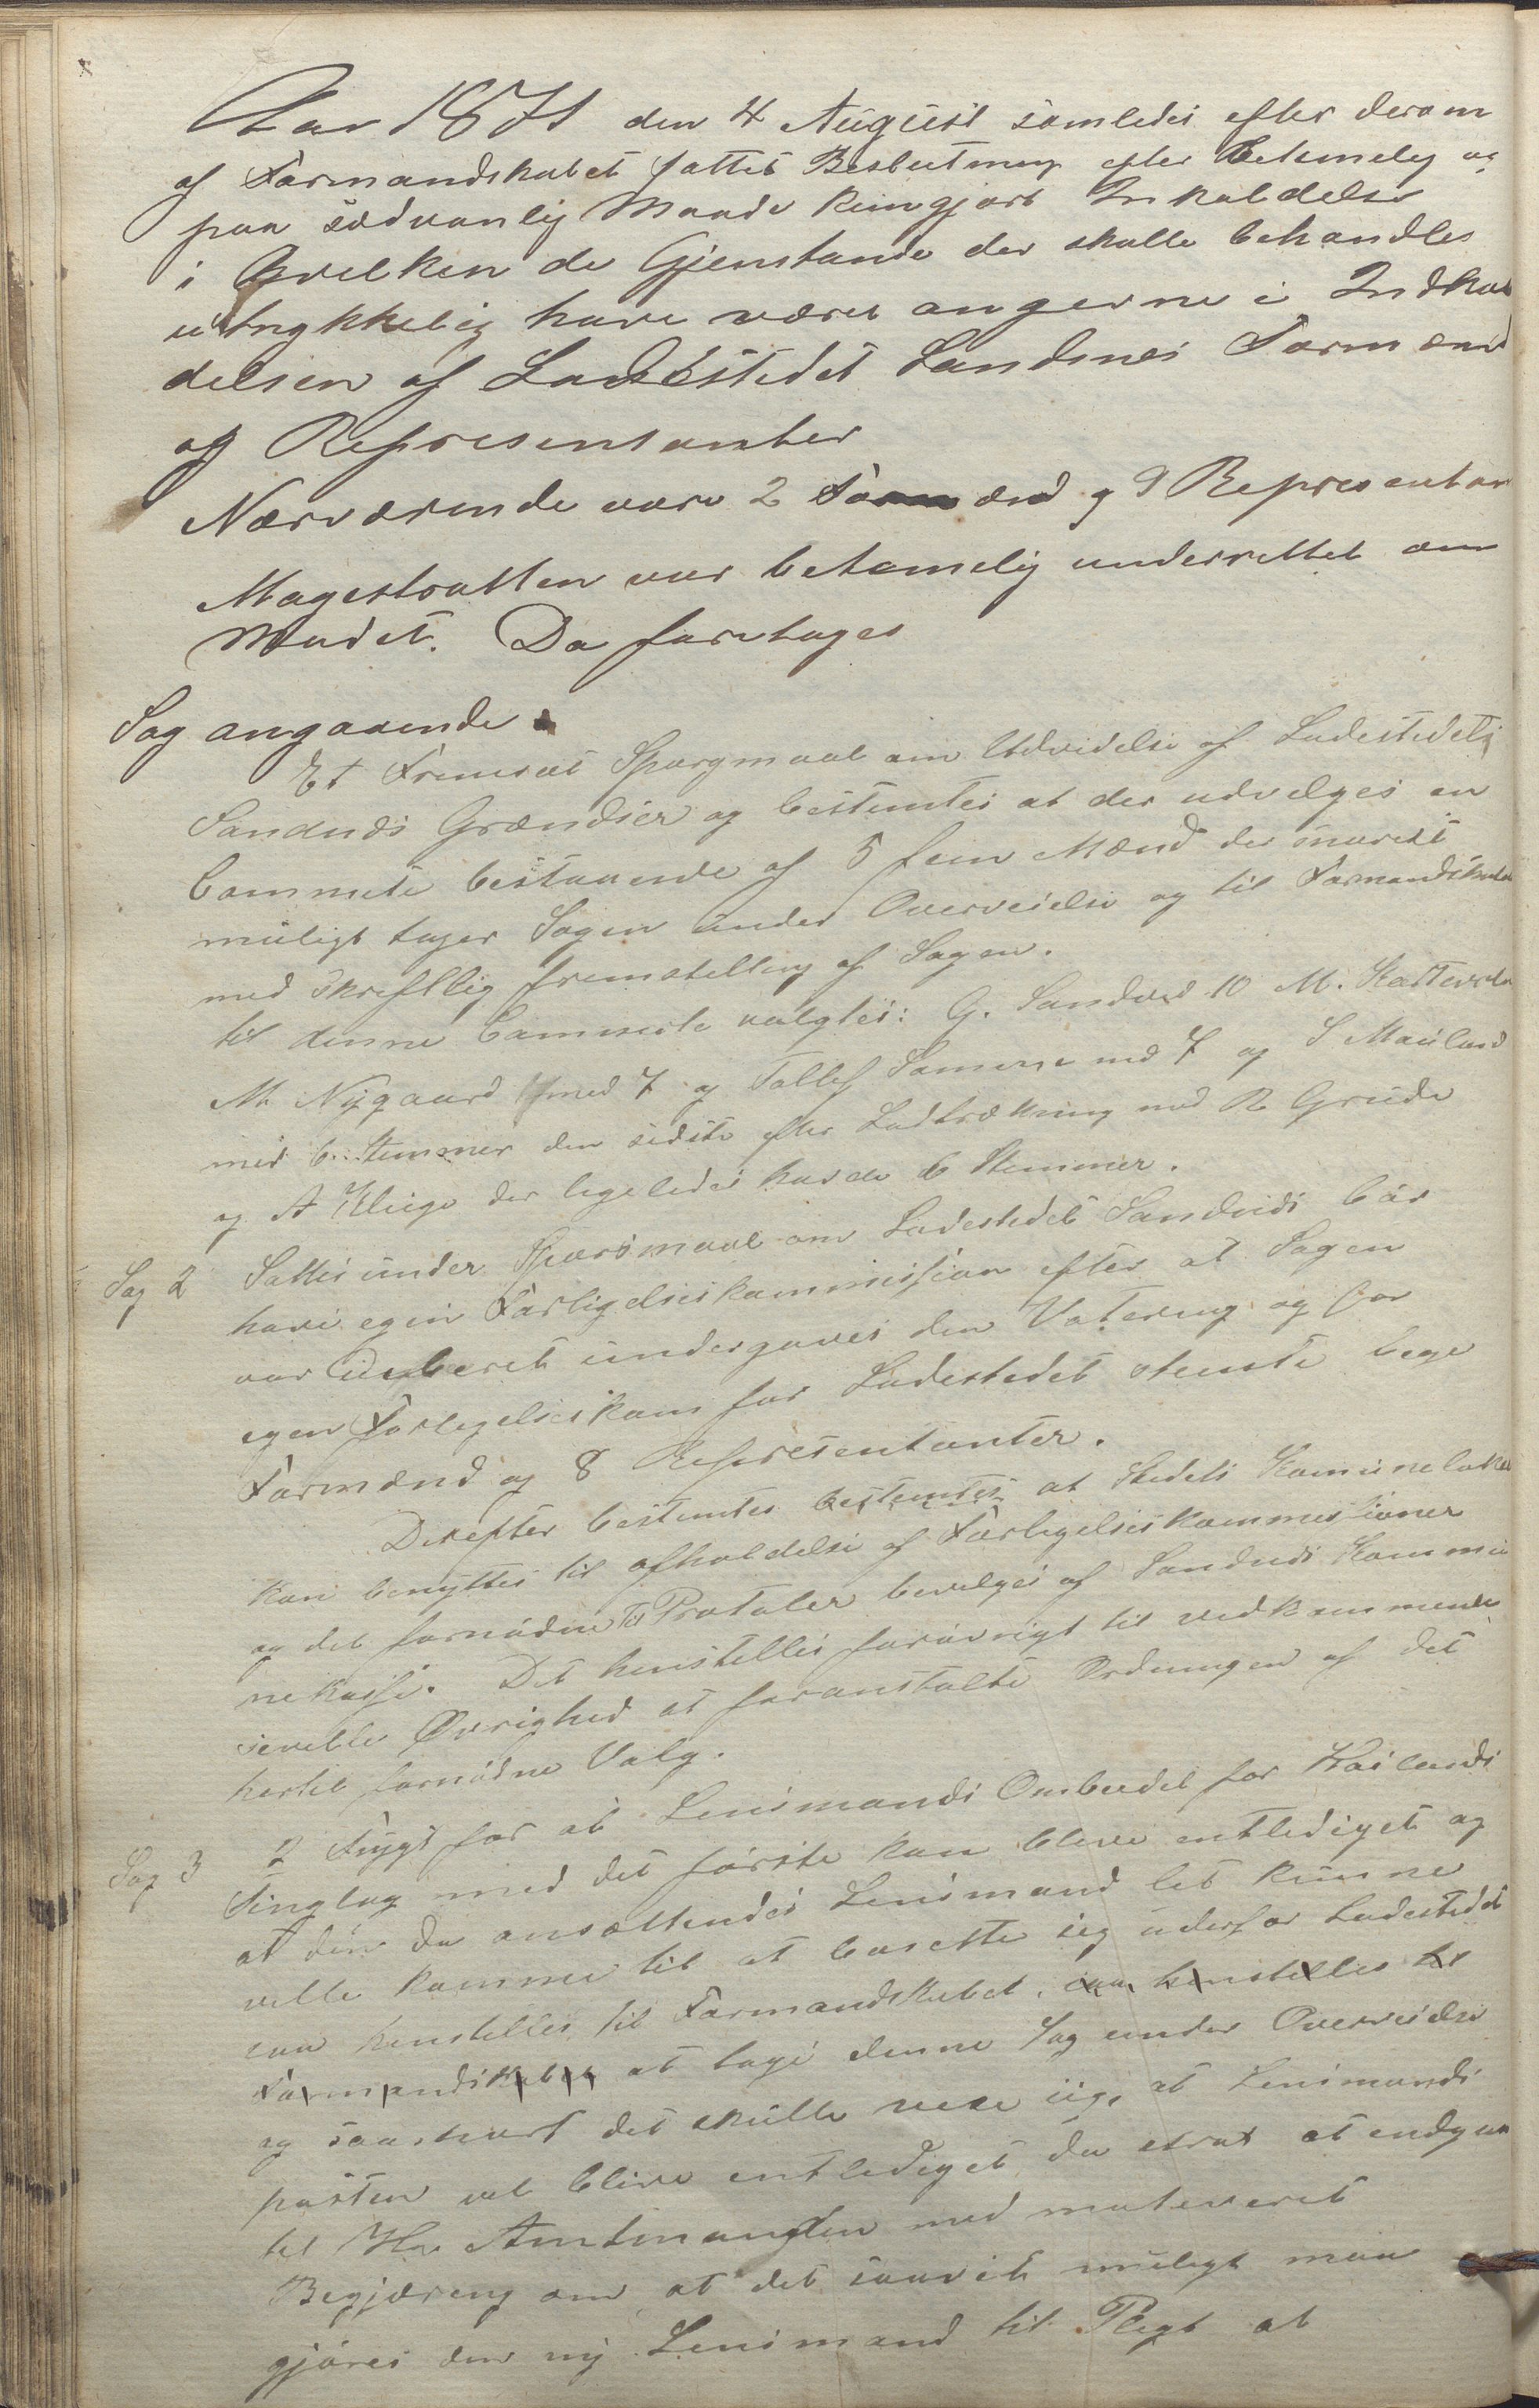 Aar 1871 den 4 August samledes efter derom
af Formandskabet fattet Beslutning efter betimelig og
paa sædvanlig Maade kungjort Inkaldelse
i hvilken de Gjenstande der skulle behandles
udtrykkelig have været angivne i Indkal
delsen af Ladestedet Sandnes Formænd
og Representanter
Nærværende vare 2 Formænd og 9 Representan
Magestratten var betimelig underrettet om
Mødet. Da foretages
Sag angaaende
Et Fremsat Spørgmaal om Udvidelse af Ladestedets
Sandnæs Grændser og bestemtes at der udvelges en
Commite bestaaende af 5 fem Mænd der snarest
muligt tager Sagen under Overveielse og til Formandskabet
med skreftlig fremstelling af Sagen.
til denne Commite valgtes: G. Sandved 10 M.
M. Nygaard med 7 og Tollef Somme med 7 og S Mauland
med 6 stemmer den sidste efter Lodtrækning med R Grude
og A Kluge der ligeledes havde 6 Stemmer.
Sag 2 Sattes under Spørsmaal om Ladestedet Sandnæs bør
have egen Forligelseskommission efter at Sagen
var debateret undergaves den Votering og for
egen Forligelseskom for Ladestedet stemte bege
Formænd og 8 Representanter.
Derefter bestemtes bestemtes at Stedets Komunelokal
kan benyttes til afholdelse af Forligelseskommissioner
og det fornødne til Protokoler bevilges af Sandnæs Kommu
nekasse. Det henstelles forøvrigt til vedkommende
sevelle Øvrighed at foranstalte Ordningen af det
hertil fornødne Valg.
Sag 3 I Frygt for at Lensmands Ombudet for Høilands
Tinglag med det første kan blive entlediget og
at den da ansættendes Lensmand let kunne
ville komme til at bosette sig udenfor Ladestedet
saa henstelles til Formandskabet, saa henstelles til
Formandskabet at tage denne Sag under Overveielse
og saasnart det skulle vise sig, at Lensmands
posten vel blive entlediget da strax at andgaa
til Hr Amtmanden med motiveret
Begjæreng om at det saavit muligt maa
gjøres den ny Lensmand til Pligt at